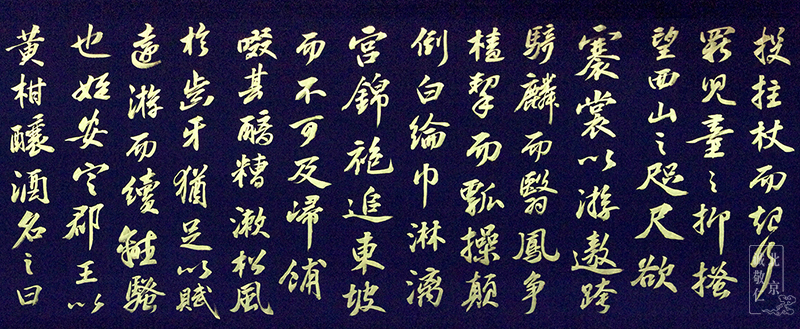 投拄杖而起行
罷兒童之抑搔
望西山之咫尺欲
褰裳以游遨跨
騎麟而翳鳳争
榼挈而瓢操顛
倒白綸巾淋漓
宮錦袍追東坡
而不可及歸餔
啜其醨糟漱松風
於齒牙猶足以賦
遠游而續離騷
也始安定郡王以
黃柑釀酒名之曰
北京
敬仁